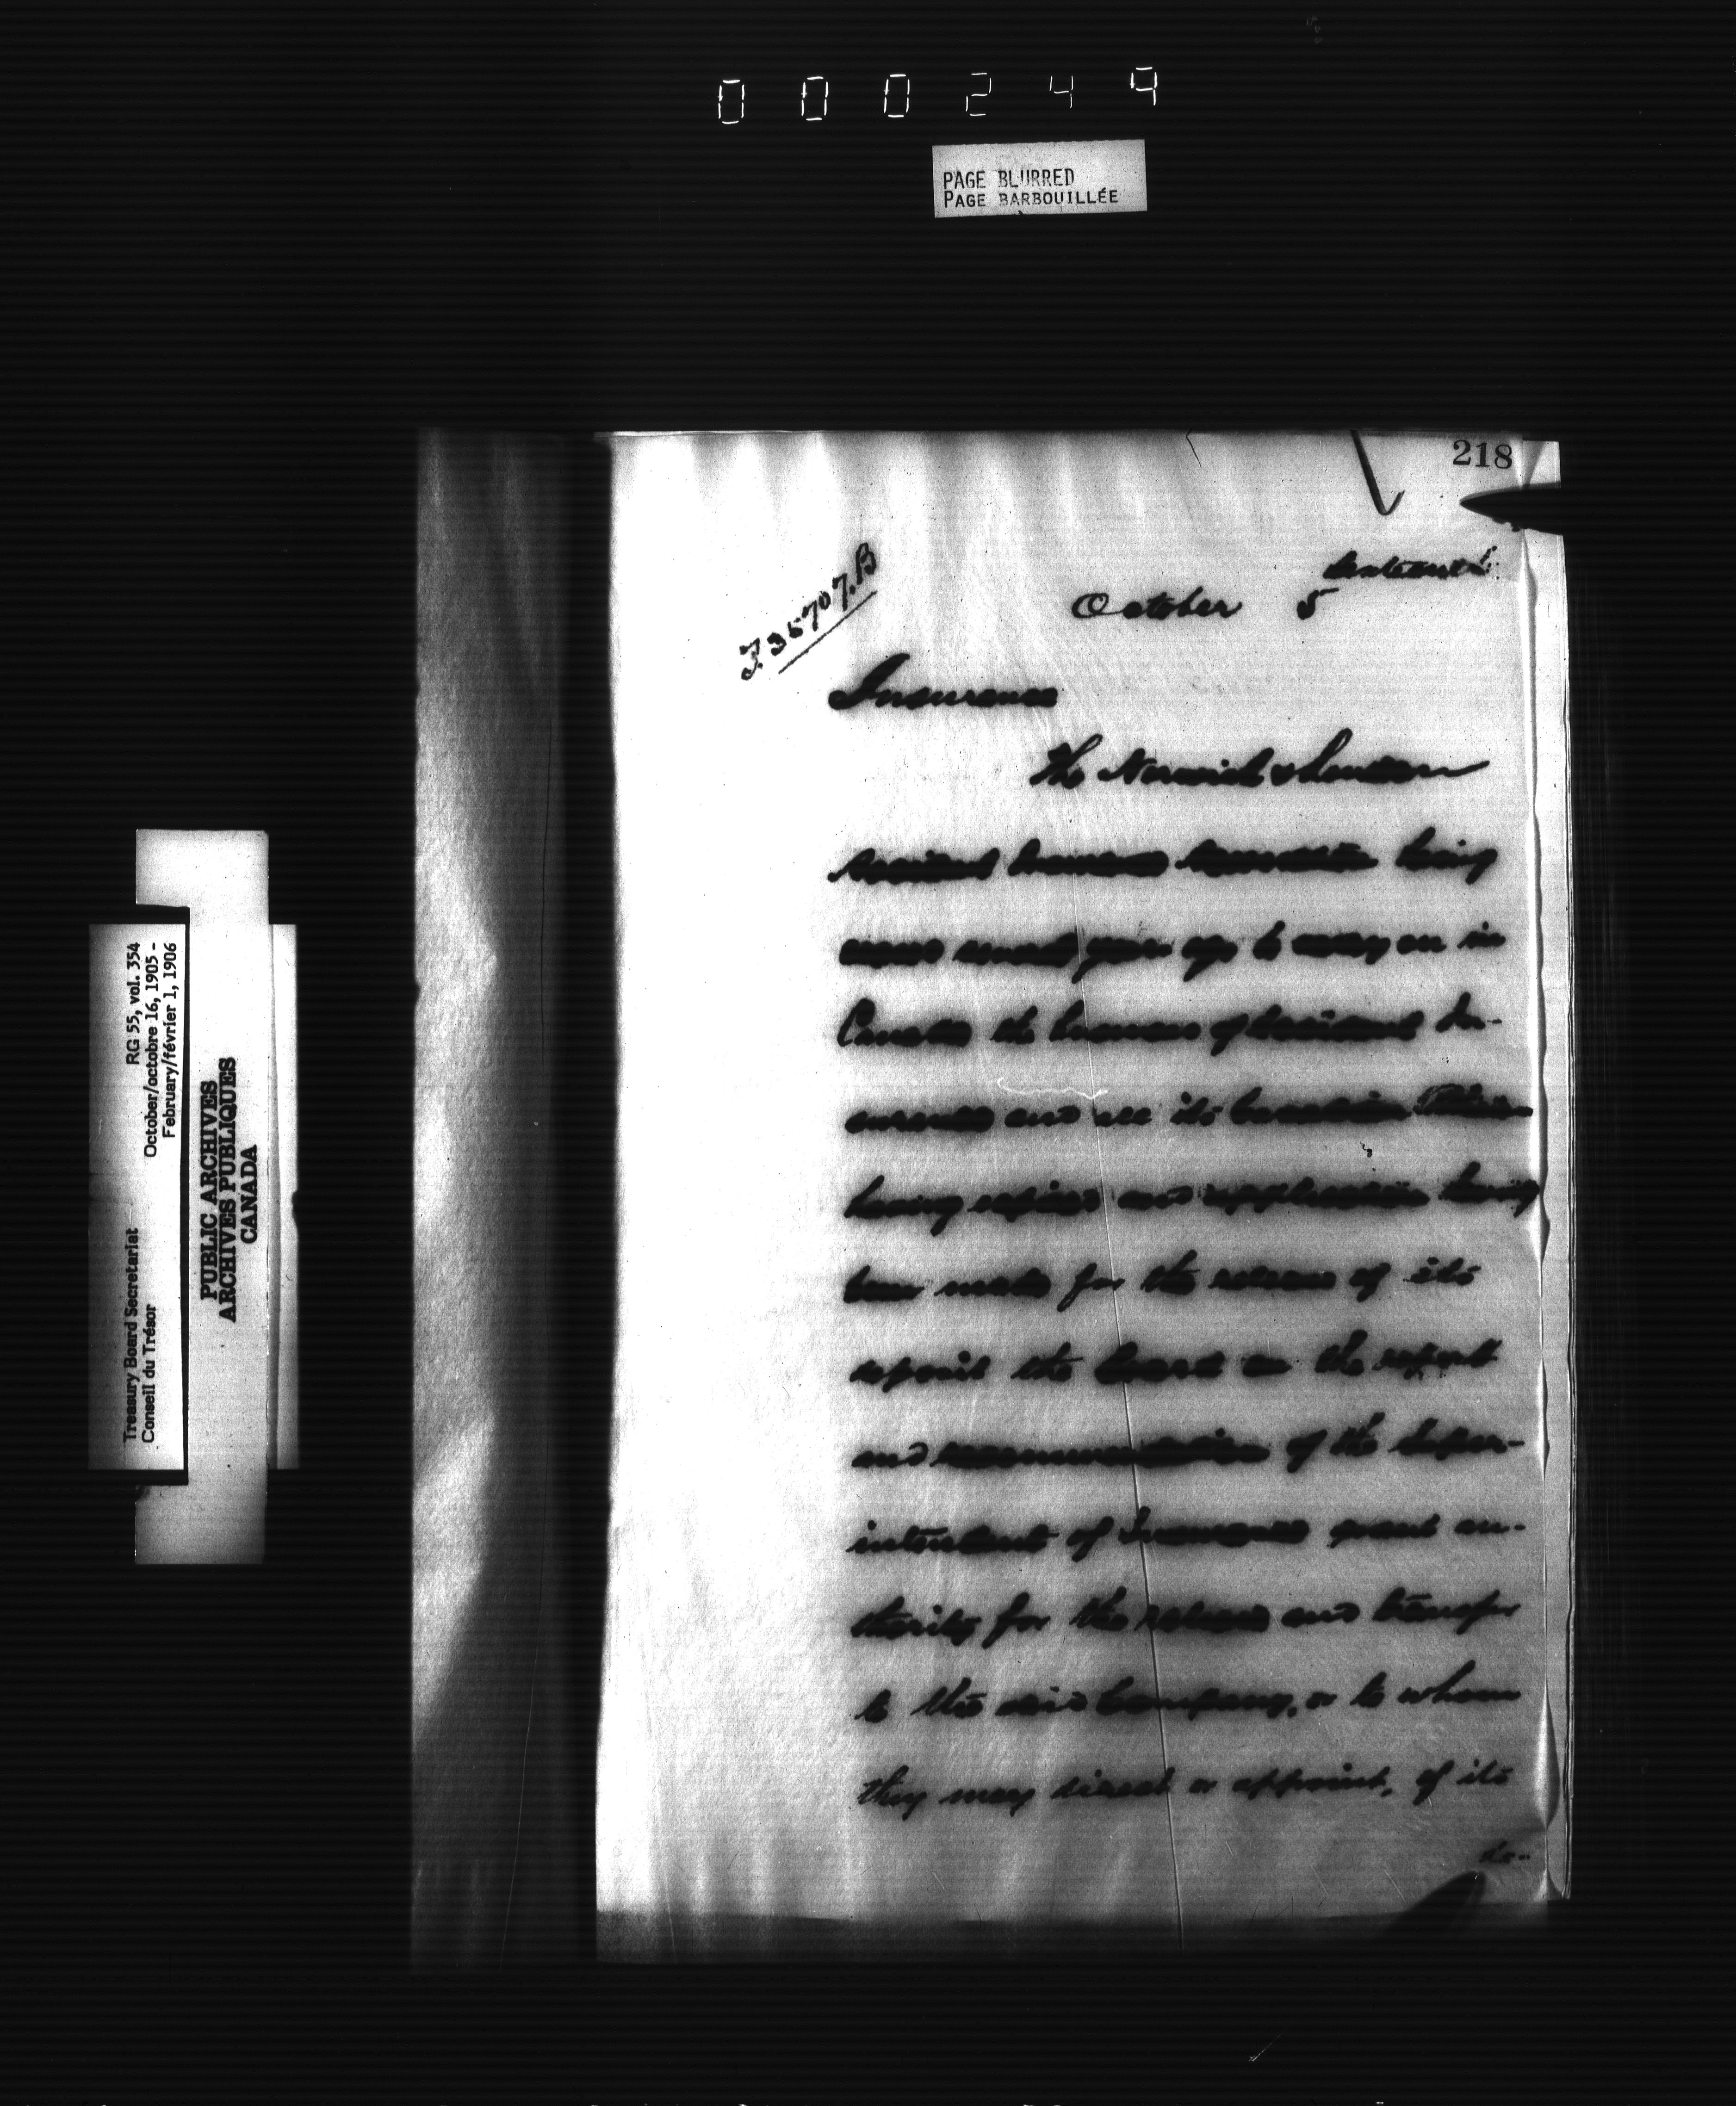 000249
PAGE BLURRED
PAGE BARBOUILLÉE
218
October 5
Insurance
The Norwich & London
Accident Insurance Association having
ceased several years ago to carry on in
Canada the business of Accident In-
surance and all its Canadian Policies
having expired and application having
been made for the release of its
deposit the Board on the report
and recommendation of the Super-
intendent of Insurance grant au-
thority for the release and transfer
to the said Company, or to whom
they may direct or appoint, of its
de-
Treasury Board Secretariat
Conseil du Trésor
RG 55, vol. 354
October/octobre 16, 1905 -
February/février 1, 1906
PUBLIC ARCHIVES
ARCHIVES PUBLIQUES
CANADA